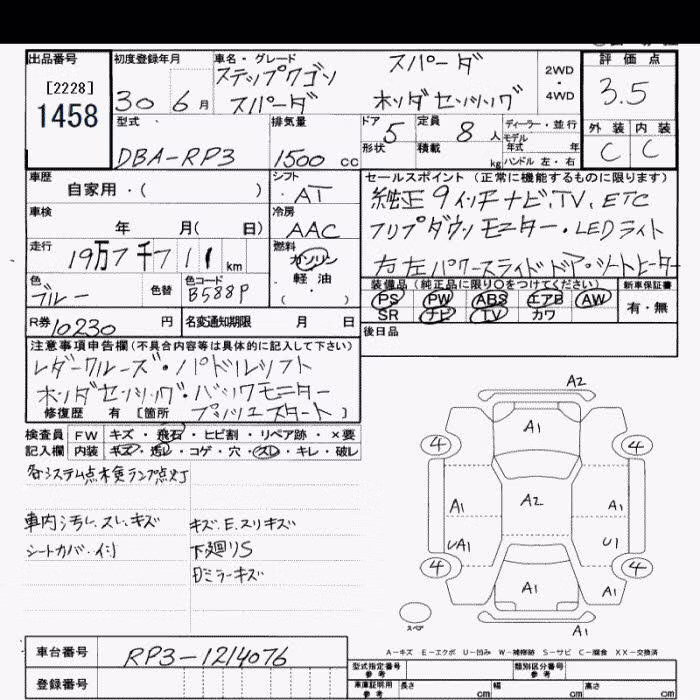 出品番号 初度登録年月 車名・グレード 評価点
[2228] ステップワゴン スパーダ 2WD・4WD 3.5
1458 30 6月 スパーダ ホンダセンシング
型式 排気量 ドア 5 定員 8人 ディーラー・並行 外装 内装
モデル年式 年
DBA-RP3 1500cc 形状 積載 kg ハンドル 左・右 C C
車歴 シフト セールスポイント(正常に機能するものに限ります)
自家用・( ) AT 純正9インチナビ,TV,ETC
車検 冷房
年 月( 日) AAC フリップダウンモニター・LEDライト
走行 19万7千711km 燃料 ガソリン・軽油 左右パワースライドドア・シートヒーター
色 ブルー 色替 色コード B588P 装備品(純正品に限り○をつけてください) 新車保証書
PS PW ABS エアB AW 有・無
SR ナビ TV カワ
R券 10230円 名変通知期限 月 日 後日品
注意事項申告欄(不具合内容等は具体的に記入して下さい)
レダークルーズ・パドルシフト
ホンダセンシング・バックモニター
修復歴 有 [箇所 プッシュスタート ]
検査員 FW キズ・飛石・ヒビ割・リペア跡・×要
記入欄 内装 キズ・汚レ・コゲ・穴・スレ・キレ・破レ
各システム点検ランプ点灯
車内汚レ.スレ.キズ キズ.E.スリキズ
シートカバー付 下廻りS
ミラーキズ
A2
A1
4 4
A1 A2 A1
UA1 U1
4 4
A1 A1
A1
スペア
A-キズ E-エクボ U-凹み W-補修跡 S-サビ C-腐食 XX-交換済
車台番号 RP3-1214076
型式指定番号 参考 類別区分番号 参考
登録番号 車庫証明用 参考 長さ cm 幅 cm 高さ cm